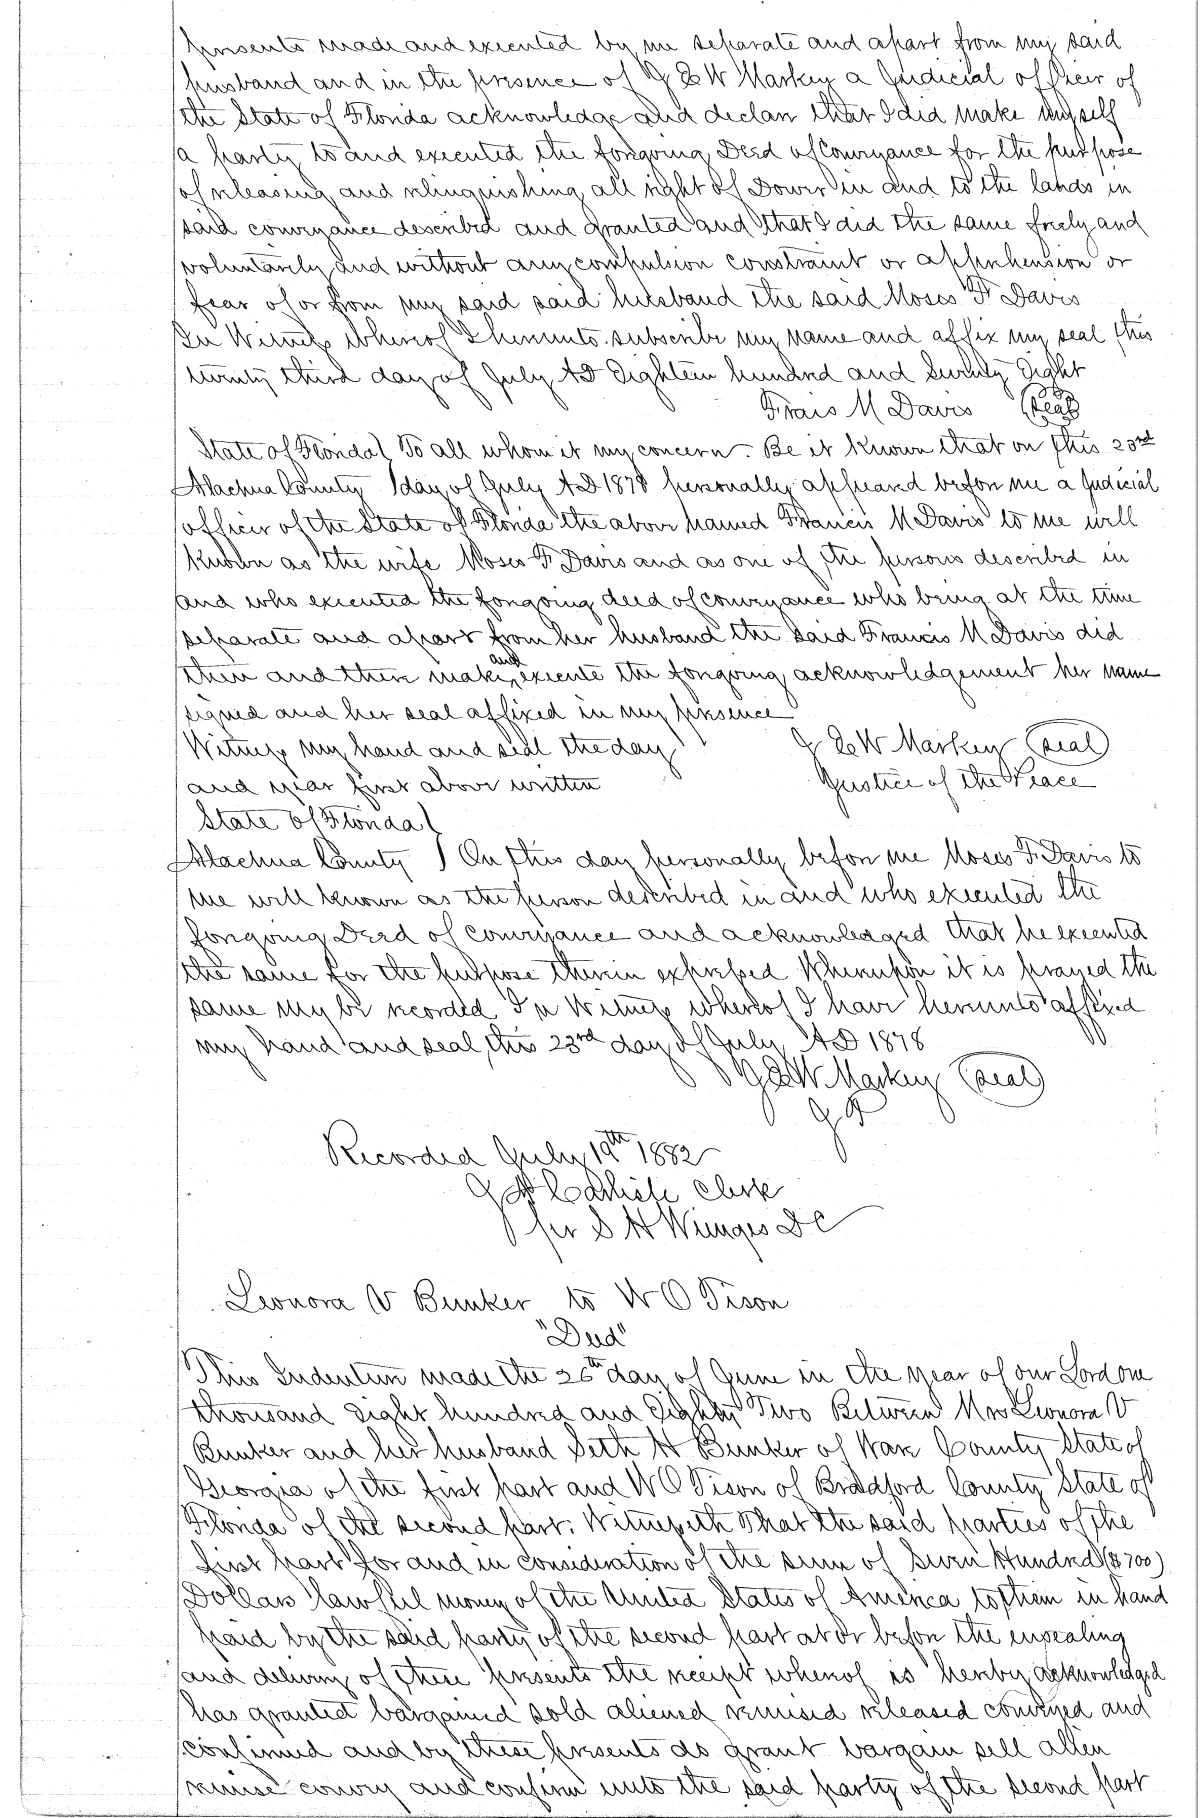 presents made and executed by me separate and apart from my said
husband and in the presence of J E W Markey a Judicial officer of
the State of Florida acknowledge and declare that I did make myself
a party to and executed the foregoing Deed of Conveyance for the purpose
of releasing and relinquishing all right of Dower in and to the lands in
said conveyance described and granted and that I did the same freely and
voluntarily and without any compulsion constraint or apprehension or
fear of or from my said said husband the said Moses F Davis
In Witness whereof I hereunto subscribe my name and affix my seal this
twenty third day of July AD Eighteen hundred and Seventy Eight
Frais M Davis (Seal)
State of Florida To all whom it my concern. Be it known that on this 23rd
Alachua County day of July AD 1878 personally appeared before me a Judicial
officer of the State of Florida the above named Francis M Davis to me well
known as the wife Moses F Davis and as one of the persons described in
and who executed the foregoing deed of conveyance who being at the time
separate and apart from her husband the said Francis M Davis did
then and there make and execute the foregoing acknowledgement her name
signed and her seal affixed in my presence
Witness my hand and seal the day J E W Markey (seal)
and year first above written Justice of the Peace
State of Florida
Alachua County On this day personally before me Moses F. Davis to
me well known as the person described in and who executed the
foregoing Deed of Conveyance and acknowledged that he executed
the same for the purpose therein expressed Whereupon it is prayed the
same my be recorded In Witness whereof I have hereunto affixed
my hand and seal, this 23rd day of July AD 1878
J E W Markey (seal)
J P
Recorded July 19th 1882
J A Carlisle Clerk
per S H Wienges DC
Leonora V Bunker to W O Tison
"Deed"
This Indenture made the 26th day of June in the year of our Lord one
thousand Eight hundred and Eighty Two Between Mrs Leonora V
Bunker and her husband Seth H Bunker of Ware County State of
Georgia of the first part and W O Tison of Bradford County State of
Florida of the second part. Witnesseth That the said parties of the
first part for and in consideration of the sum of Seven Hundred ($700)
Dollars lawful money of the United States of America to them in hand
paid by the said party of the second part at or before the ensealing
and delivery of these presents the receipt whereof is hereby acknowledged
has granted bargained sold aliened remised released conveyed and
confirmed and by these presents do grant bargain sell alien
remise convey and confirm unto the said party of the second part